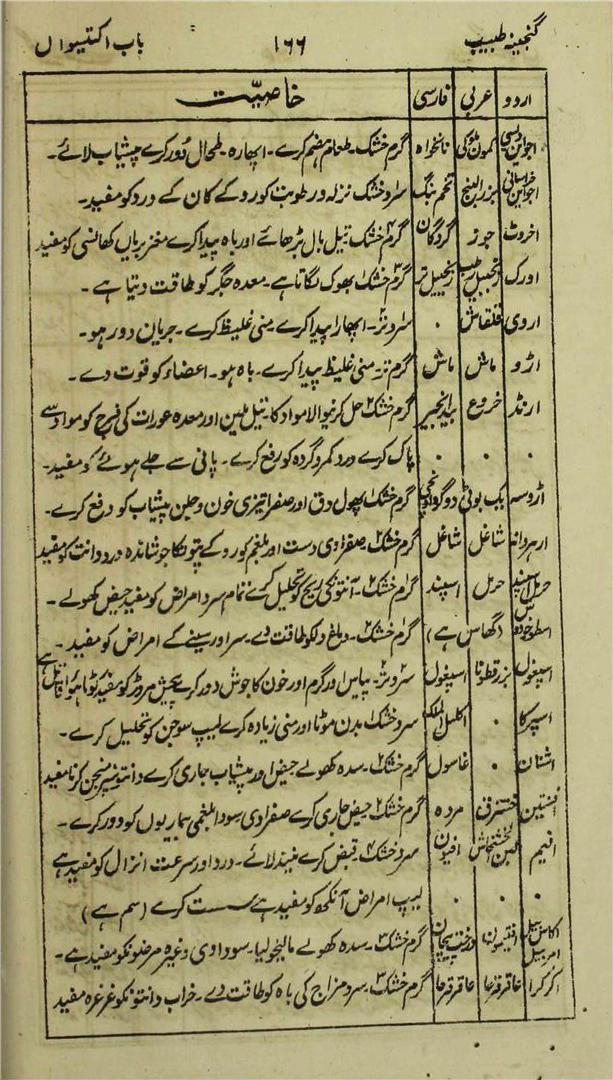 گنجینہ طبیب ۱۶۶ باب اکتیواں
اردو عربی فارسی خاصیّت
اجواین دیسی کمون ملوکی نانخواہ گرم خشک۔ طعام ہضم کرے۔ اپھارہ۔ طحال دور کرے پیشاب لائے۔
اجواین خراسانی بزرالبنج تخم بنگ سرد خشک نزلہ ورطوبت کو روکے کان کے درد کو مفید۔
اخروٹ جوز گردگان گرم خشک تیل بال بڑھائے اور باہ پیدا کرے مغز بریاں کھانسی کو مفید
ادرک زنجبیل رطب زنجبیل تر گرم خشک بھوک لگاتا ہے۔ معدہ جگر کو طاقت دیتا ہے۔
اروی قلقاش ۰ سرد تر۔ اپھارا پیدا کرے۔ منی غلیظ کرے۔ جریان دور ہو۔
اڑو ماش ماش گرم تر۔ منی غلیظ پیدا کرے۔ باہ ہو۔ اعضاء کو قوت دے۔
ارنڈ خروع بیدانجیر گرم خشک ۲ حل کرنیوالا مواد کا۔ تیل ملین اور معدہ عورات کی فرج کو مواد سے
۰ ۰ ۰ پاک کرے درد کمر و گردہ کو رفع کرے۔ پانی سے جلے ہوئے کو مفید۔
اڑوسہ بک بوٹی گرم خشک ۱ پھول دق اور صفرا تیزی خون و جلن پیشاب کو دفع کرے۔
ارہروانہ شاغل شاغل گرم خشک ۲ صفراوی دست اور بلغم کو روکے پتونکا جوشاندہ درد دانت کو مفید
حرمل اسپند حرمل اسپند گرم خشک ۲۔ آنتونکی ریح کو تحلیل کرے تمام سرد امراض کو مفید حیض کھولے۔
اسطوخودوس (گھاس ہے) گرم خشک ۲۔ دماغ و دلکو طاقت دے۔ سر اور سینے کے امراض کو مفید۔
اسپغول بزرقطونا اسپغول سرد تر ۲۔ پیاس اور گرم اور خون کا جوش دور کرے پیچش مروڑ کو مفید کوٹا ہوا قاتل ہے
اسپرکا ۰ اکلیل الملک سرد خشک ۱ بدن موٹا اور منی زیادہ کرے لیپ سوجن کو تحلیل کرے۔
اشنان ۰ غاسول گرم خشک ۲۔ سدہ کھولے حیض اور پیشاب جاری کرے دانتونپر منجن کرنا مفید
افسنتین خترق مردہ گرم خشک ۲ حیض جاری کرے صفراوی سودا بلغمی بیماریوں کو دور کرے۔
افیم لبن الخشخاش افیون سرد خشک ۴۔ قبض کرے نیند لائے۔ درد اور سرعت انزال کو مفید ہے
۰ ۰ ۰ لیپ امراض آنکھ کو مفید ہے سست کرے (سم ہے)
اکاس بیل امر بیل افتیمون درخت پیچاں گرم خشک ۳۔ سدہ کھولے مالیخولیا۔ سوداوی وغیرہ مرضونکو مفید ہے۔
اکرکرا عاقرقرحا عاقرقرحا گرم خشک ۳۔ سرد مزاج کی باہ کو طاقت دے۔ خراب دانتونکو غرغرہ مفید